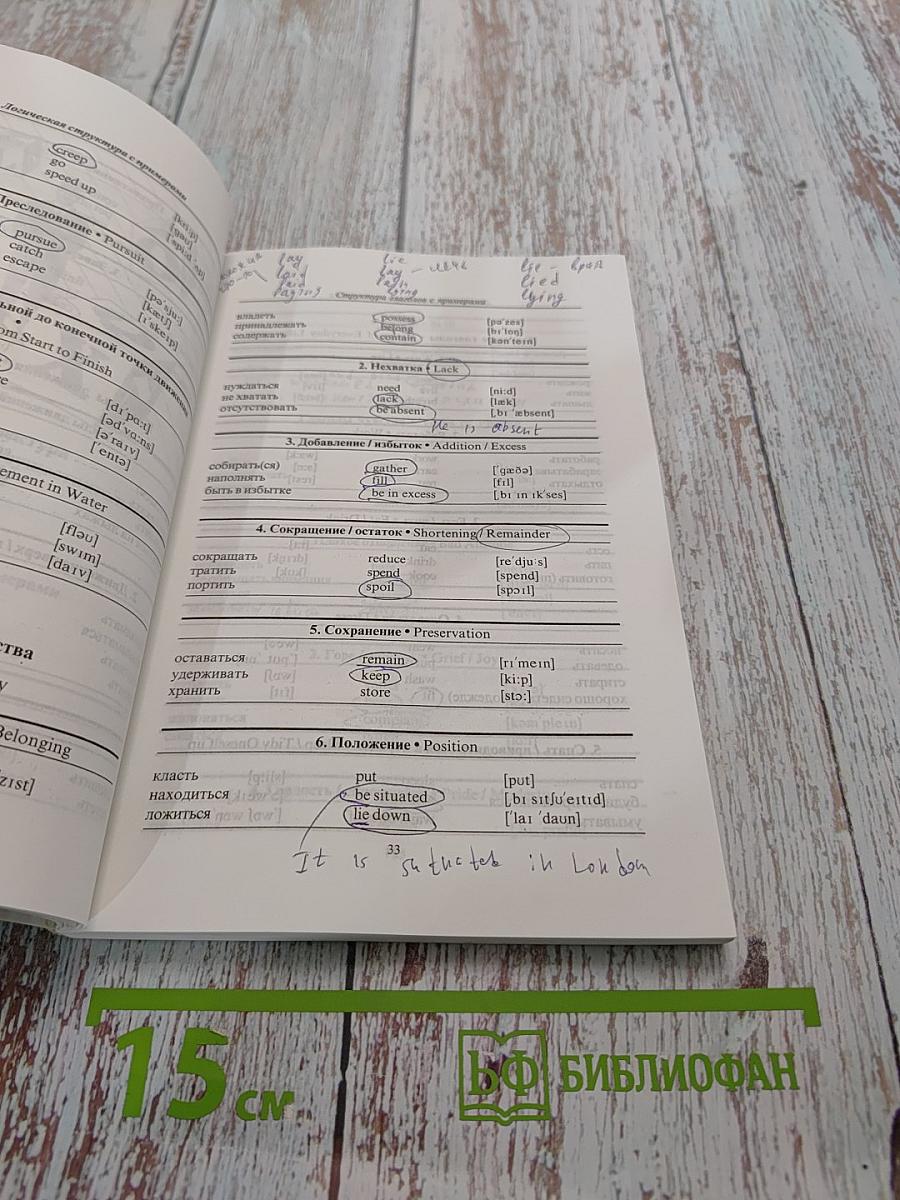 Логическая структура с примерами
creep
go
speed up
Преследование • Pursuit
pursue [pə'sju:]
catch [kætʃ]
escape [ɪ'skeɪp]
ьной до конечной точки движения
om Start to Finish
[dɪ'pɑ:t]
[əd'vɑ:ns]
[ə'raɪv]
['entə]
ement in Water
[fləʊ]
[swɪm]
[daɪv]
ства
Belonging
lay lie lie - врать
laid lay lied
laid lying
Структура глаголов с примерами
владеть possess [pə'zes]
принадлежать belong [bɪ'lɒŋ]
содержать contain [kən'teɪn]
2. Нехватка • Lack
нуждаться need [ni:d]
не хватать lack [læk]
отсутствовать be absent [ˌbɪ 'æbsent]
He is absent
3. Добавление / избыток • Addition / Excess
собирать(ся) gather ['gæðə]
наполнять fill [fɪl]
быть в избытке be in excess [ˌbɪ ɪn ɪk'ses]
4. Сокращение / остаток • Shortening / Remainder
сокращать reduce [re'dju:s]
тратить spend [spend]
портить spoil [spɔɪl]
5. Сохранение • Preservation
оставаться remain [rɪ'meɪn]
удерживать keep [ki:p]
хранить store [stɔ:]
6. Положение • Position
класть put [pʊt]
находиться be situated [ˌbɪ sɪtʃʊ'eɪtɪd]
ложиться lie down ['laɪ 'daʊn]
33
It is in London
15 см
БФ БИБЛИОФАН